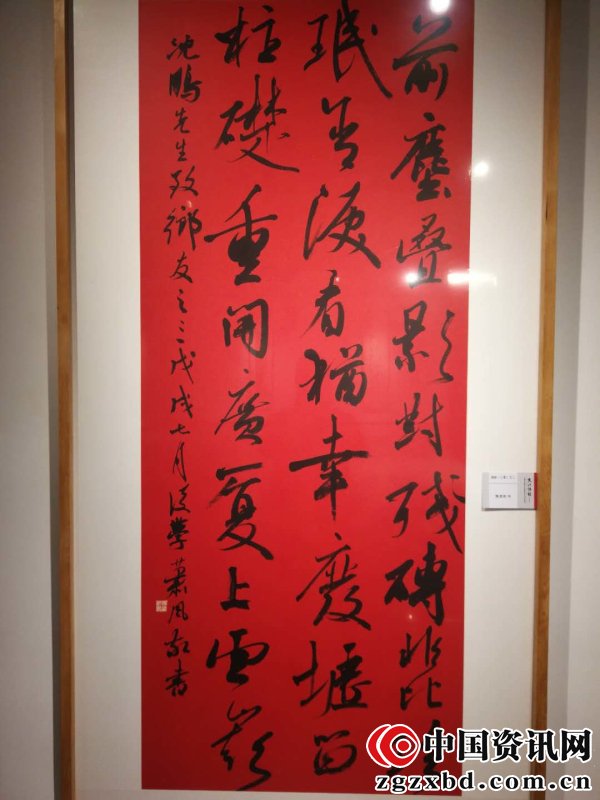 前塵疊影對殘磚非比
珉含淚看猶幸廢墟留
柱礎重開廣廈上雲
沈鵬先生致鄉友之三戊戌七月後學蕭風敬書
中国资讯网
zgzxbd.com.cn